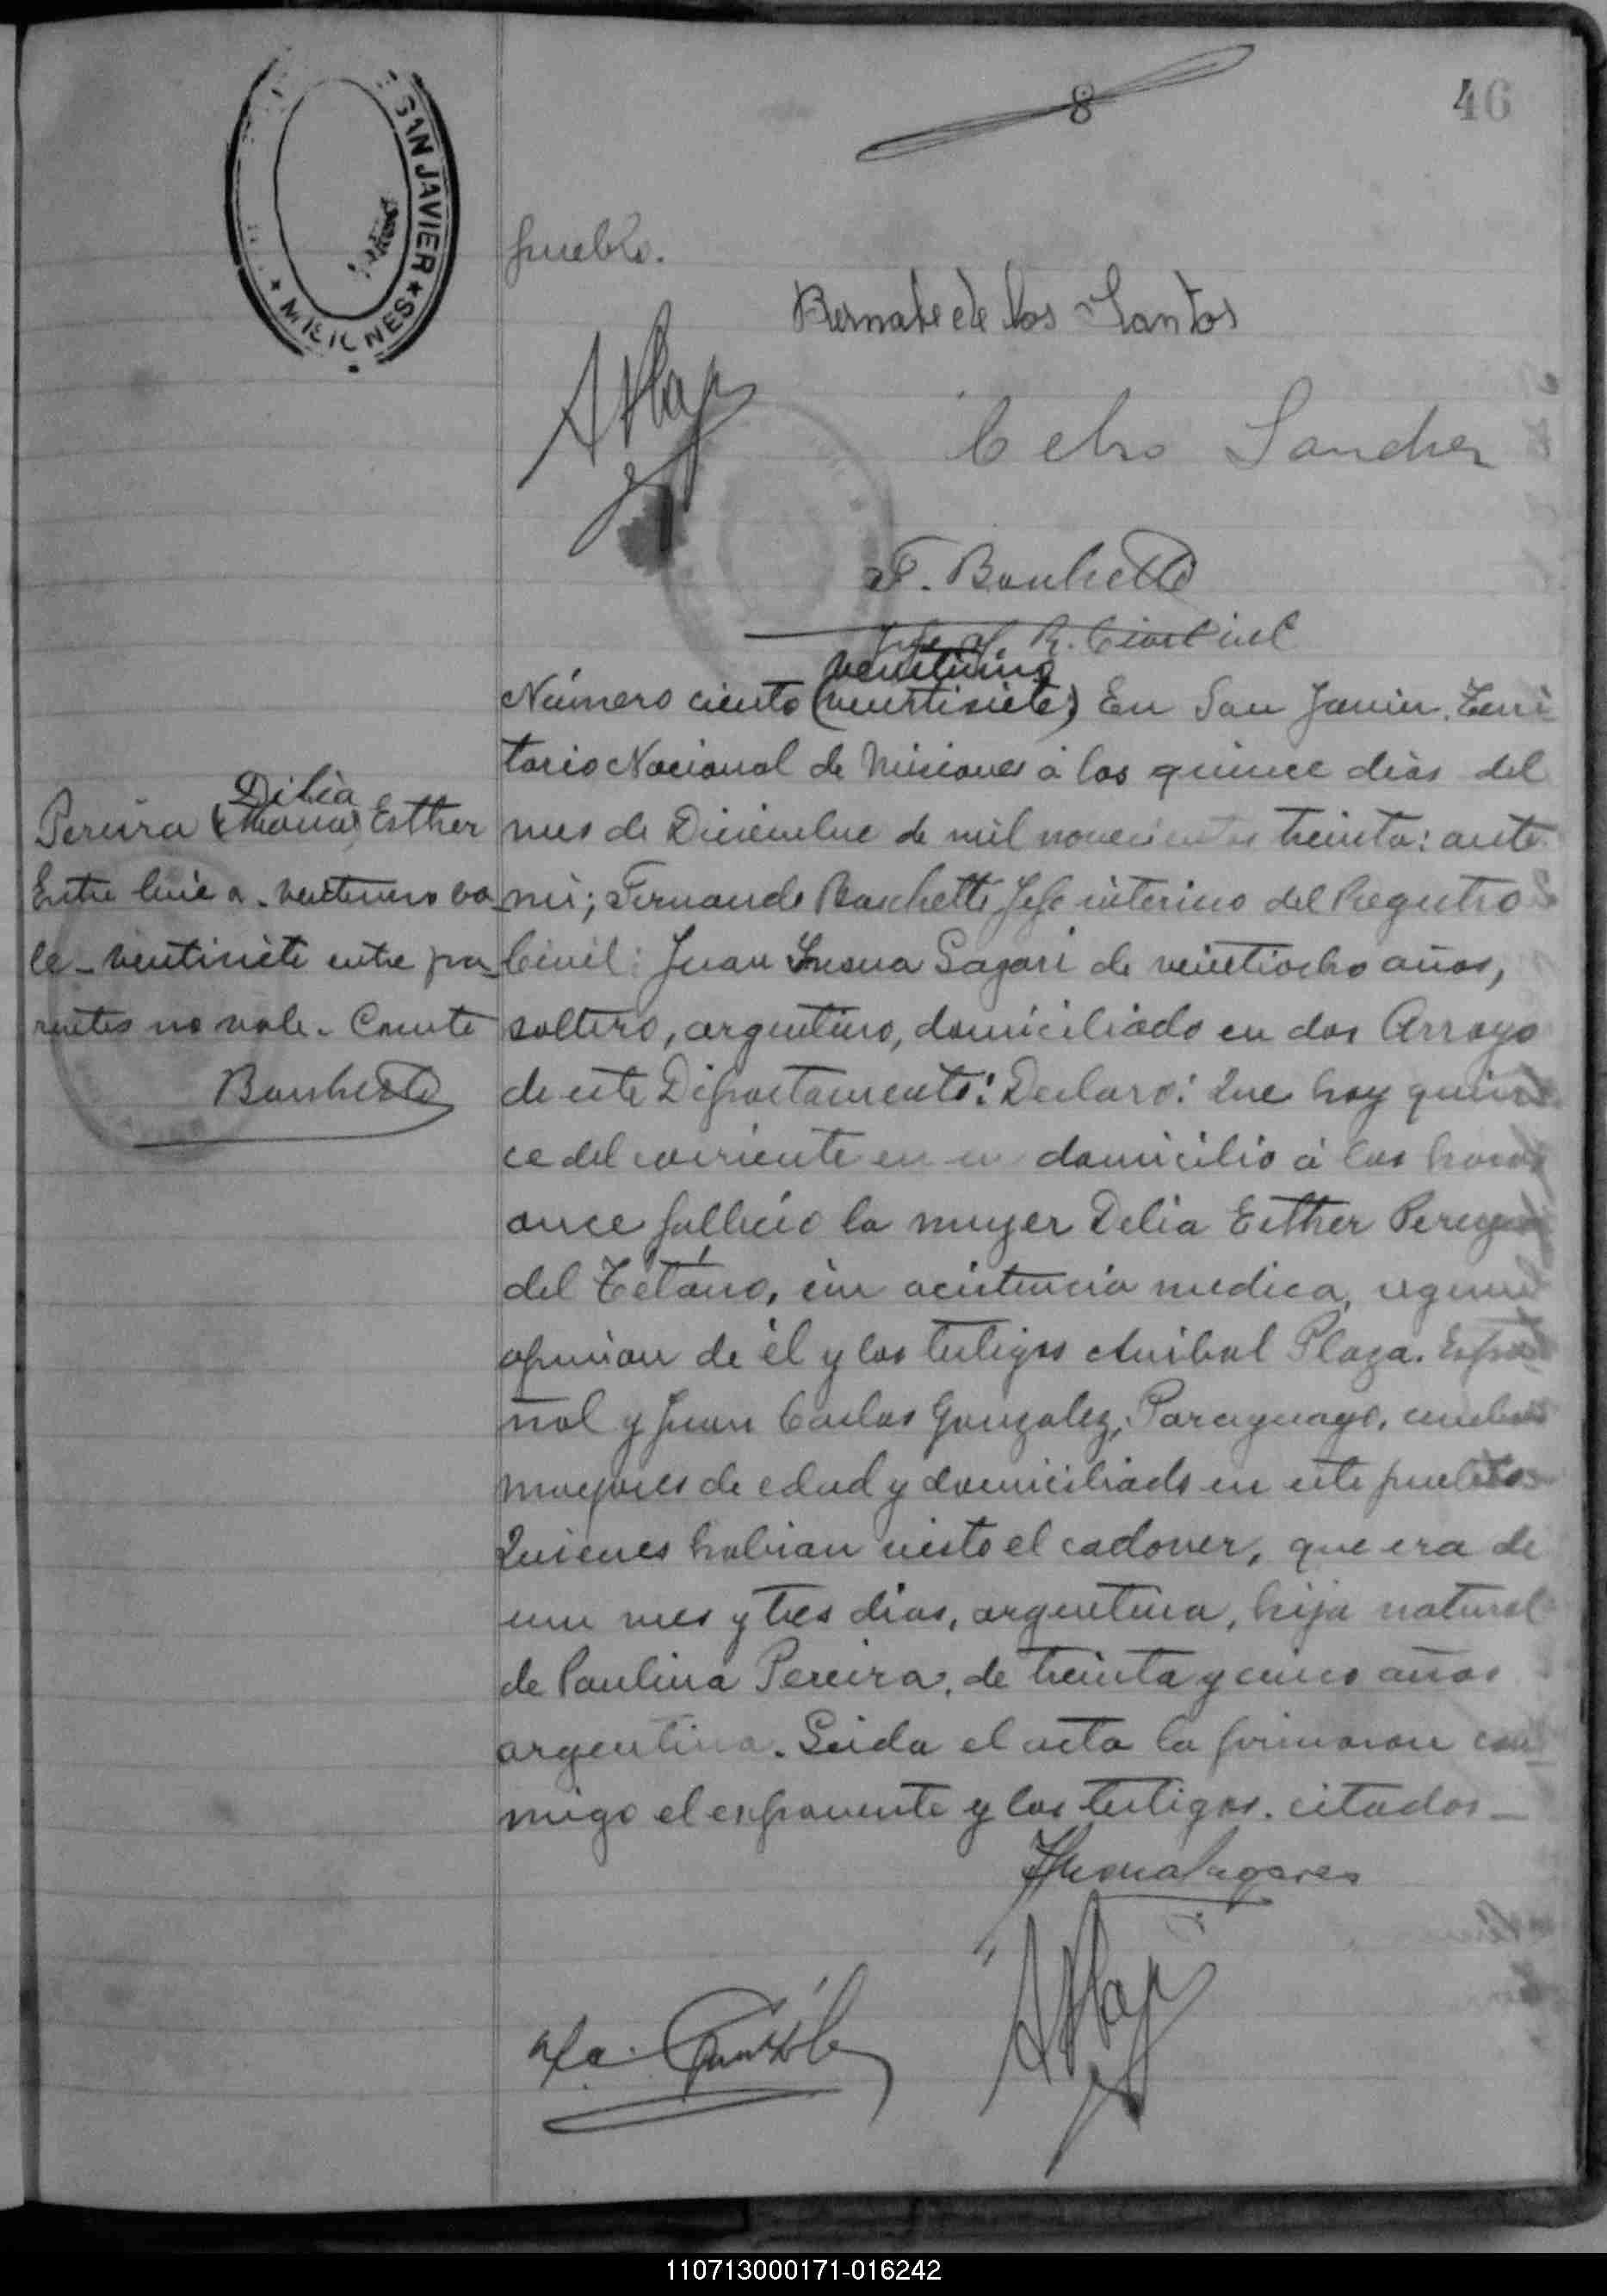 8
46
SAN JAVIER
MISIONES
pueblo.
Bernabe de los Santos
Celso Sanchez
F. Banchetti
R. Civil
ventiuno
Número ciento (ventisiete) En San Javier, Terri
torio Nacional de Misiones a los quince dias del
mes de Diciembre de mil novecientos treinta: ante
mi; Fernando Banchetti Jefe interino del Registro
Civil: Juan Sagari de veintiocho años,
soltero, argentino, domiciliado en dos Arroyo
de este Departamento: Declaro: Que hoy quin
ce del corriente en su domicilio á las horas
once fallecio la mujer Delia Esther Pereyra
del Tétano, sin acistencia medica, segun
opinion de él y los testigos Anibal Plaza. Espa
ñol y Juan Carlos Gonzalez, Paraguayo, ambos
mayores de edad y domiciliado en este pueblo
Quienes habian visto el cadaver, que era de
un mes y tres dias, argentina, hija natural
de Paulina Pereira, de treinta y cinco años
argentina. Leida el acta la firmaron con
migo el exponente y los testigos. citados
Dilia
Pereira ( ) Esther
Entre linea. ventiuno va
le - ventisiete entre pa
rentes no vale. Conste
Banchetti
110713000171-016242